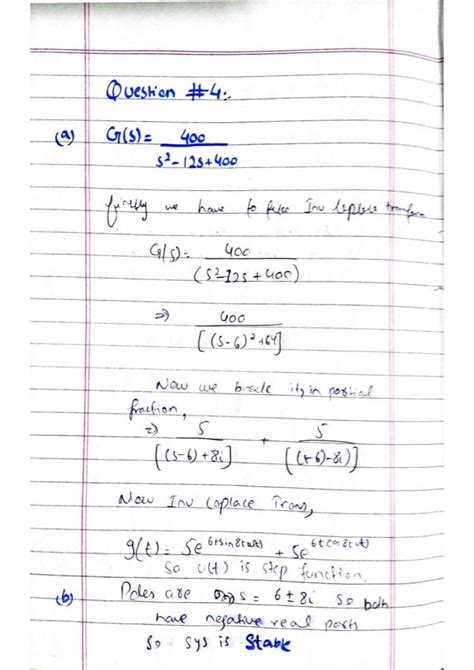 Question #4:.
(a) G(s) = 400
s²-12s+400
firstly we have to take Inv laplace transform
G(s) = 400
(s²-12s + 400)
⇒ 400
[(s-6)²+64]
Now we break it in partial
fraction,
⇒ 5 + 5
[(s-6)+8i] [(s-6)-8i)]
Now Inv Laplace Trans,
g(t) = 5e^6tsin8tu(t) + 5e^6tcos8t u(t)
So u(t) is step function.
(b) Poles are s = 6 ± 8i so both
have negative real parts
so sys is Stable